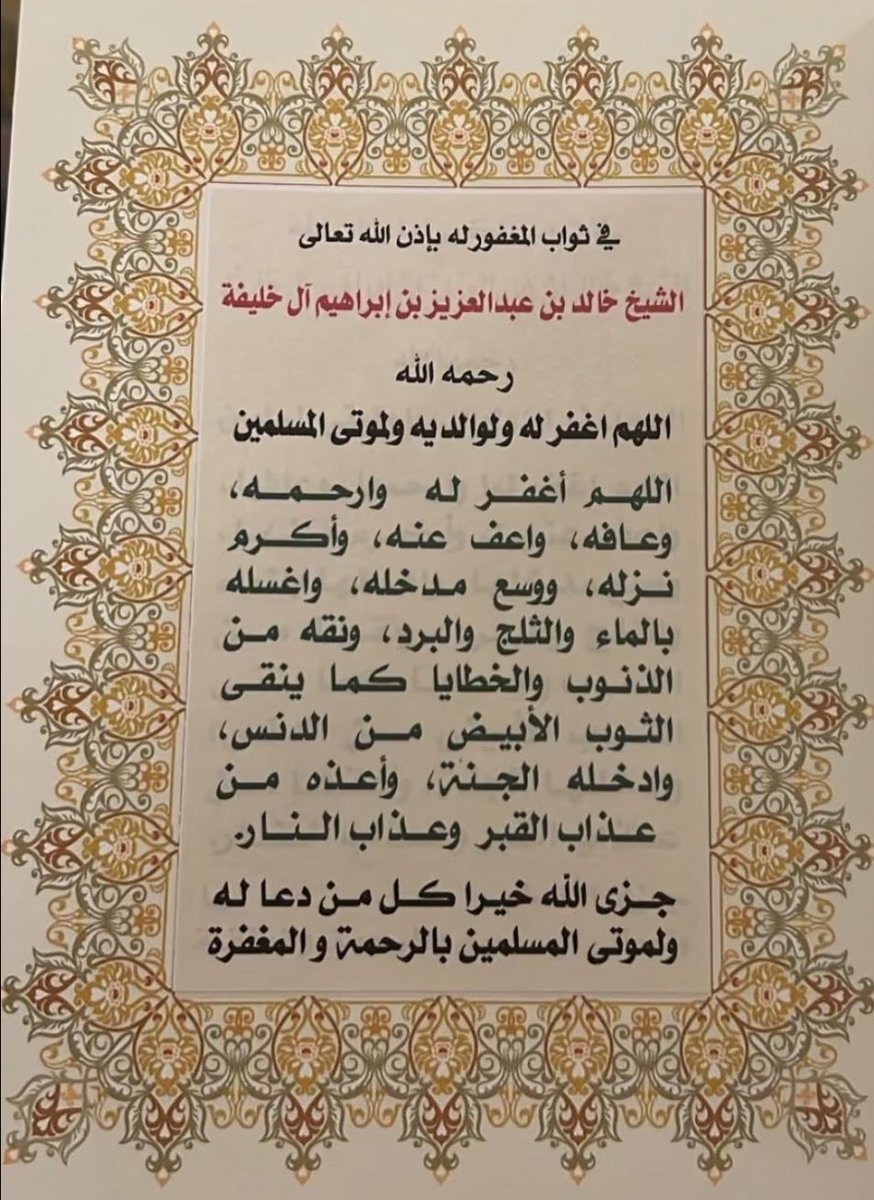 في ثواب المغفور له بإذن الله تعالى
الشيخ خالد بن عبدالعزيز بن إبراهيم آل خليفة
رحمه الله
اللهم اغفر له ولوالديه ولموتى المسلمين
اللهم أغفر له وارحمه،
وعافه، واعف عنه، وأكرم
نزله، ووسع مدخله، واغسله
بالماء والثلج والبرد، ونقه من
الذنوب والخطايا كما ينقى
الثوب الأبيض من الدنس،
وادخله الجنة، وأعذه من
عذاب القبر وعذاب النار.
جزى الله خيرا كل من دعا له
ولموتى المسلمين بالرحمة و المغفرة